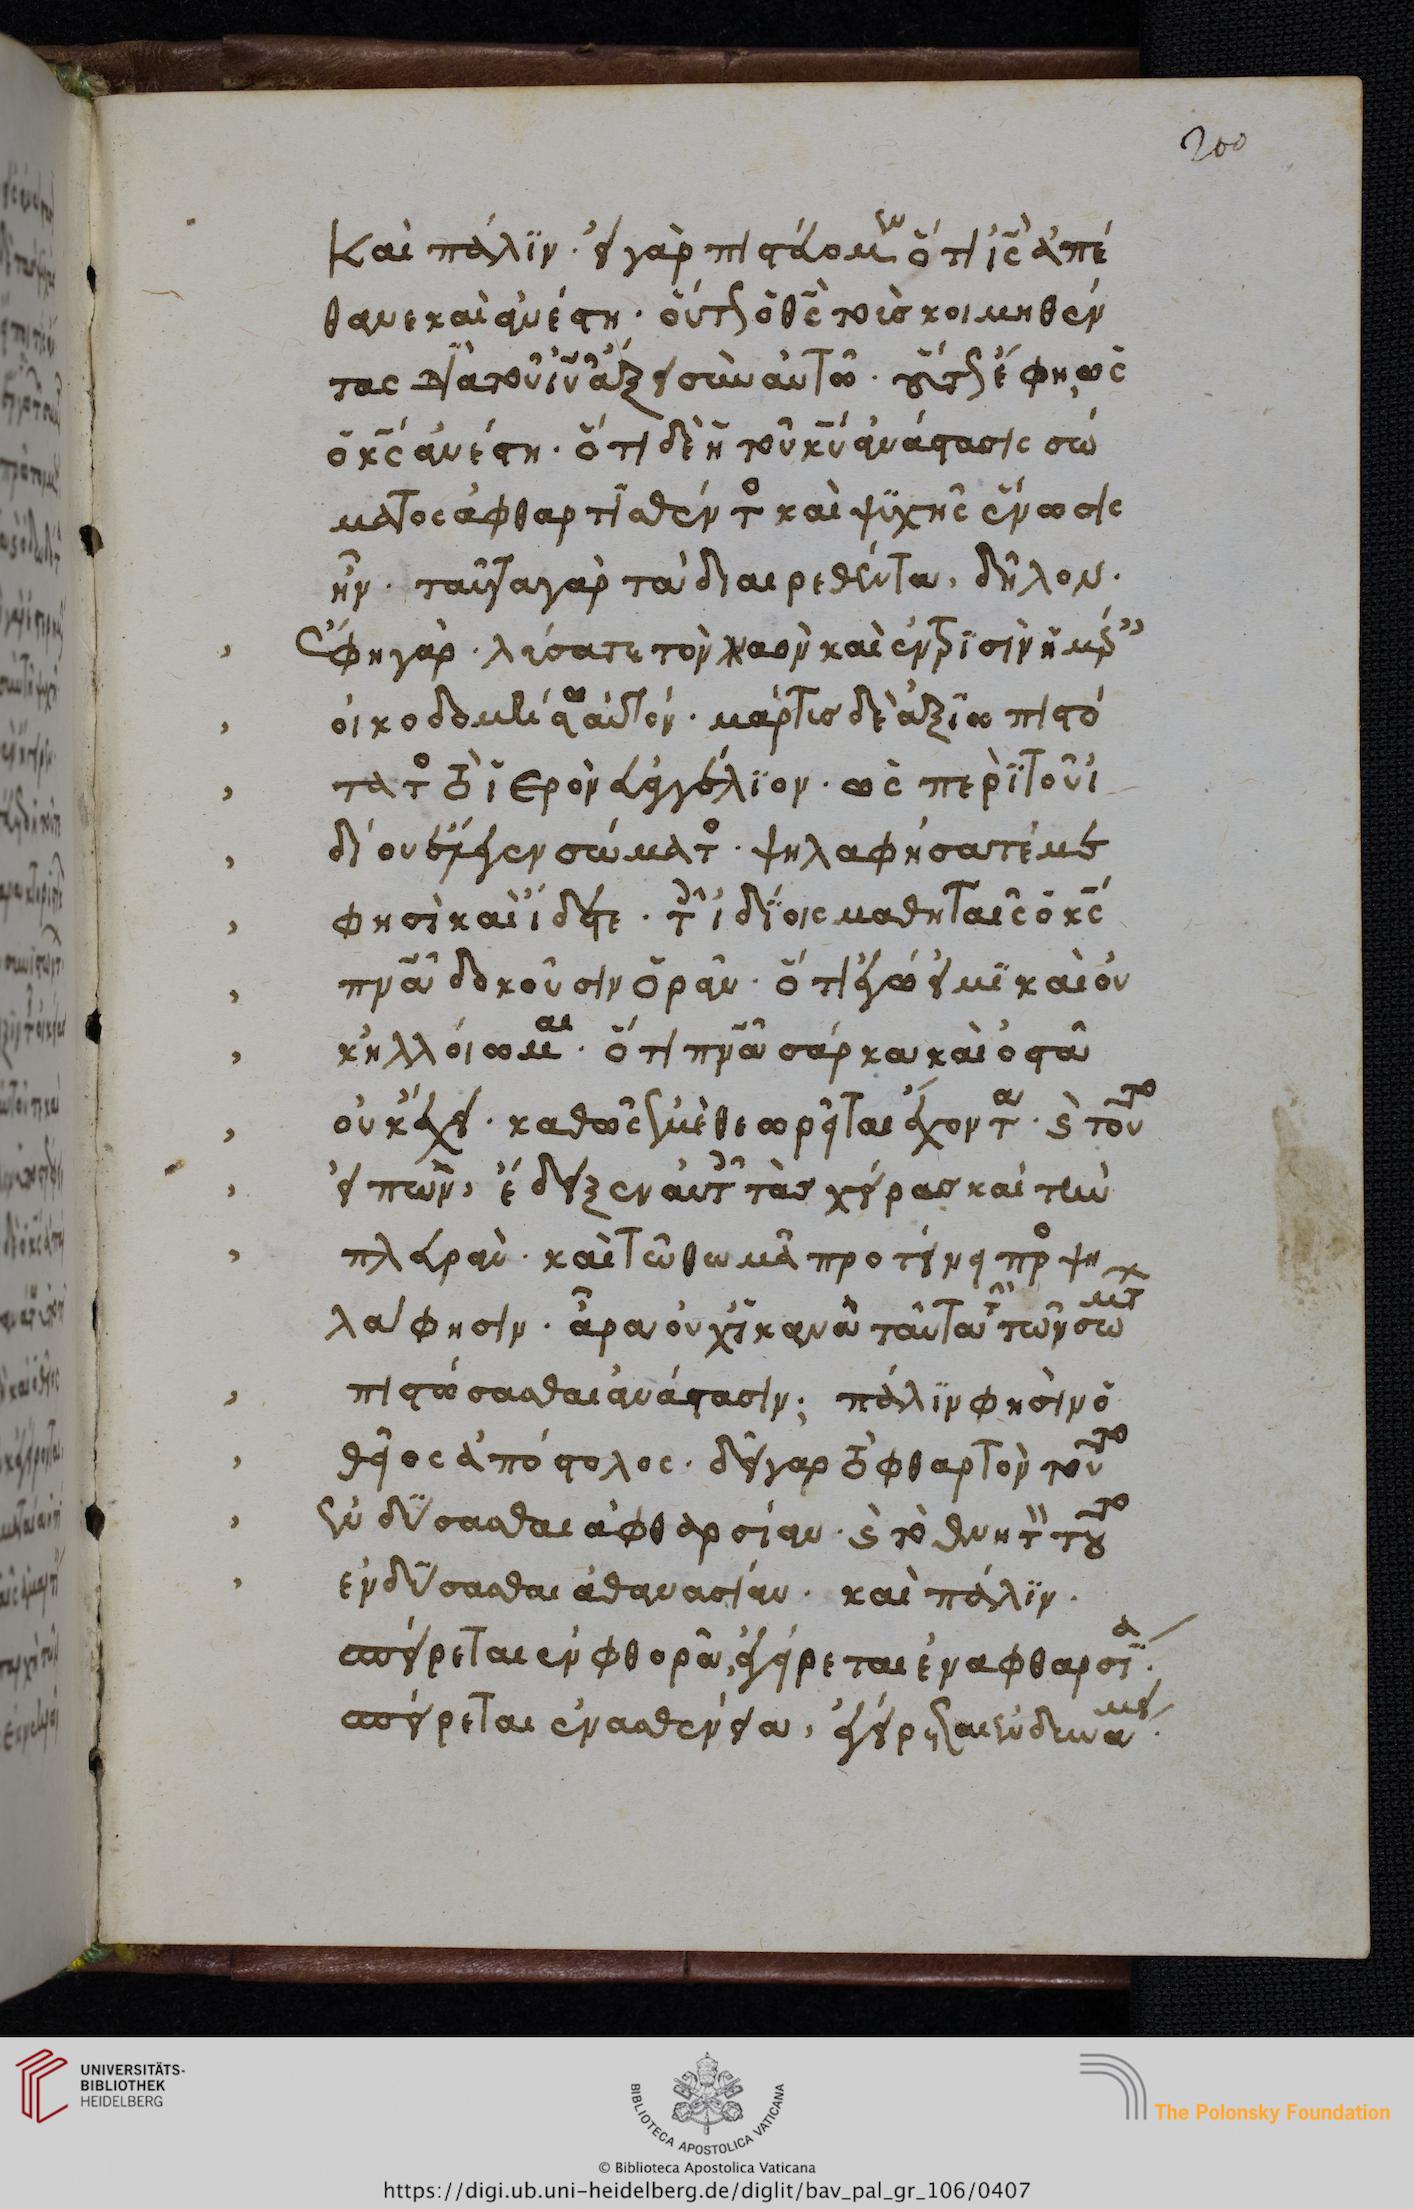 200
Καὶ πάλϊν · εἰ γὰρ πιστεύομεν ὅτι ἰς̅ ἀπέ
θανε καὶ ἀνέστη · οὕτως ὁ θς̅ τοὺς κοιμηθέν
τας διὰ τοῦ ἰυ̅ ἄξει σὺν αὐτῶ · οὕτως ἔφη, ὡς
ὁ κς̅ ἀνέστη · ὅτι δὲ ἡ τοῦ κυ̅ ἀνάστασις σώ
ματος ἀφθαρτισθέντος καὶ ψϋχῆς ἕνωσις
ἦν · ταῦτα γὰρ τὰ διαιρεθέντα, δῆλον ·
Ἔφη γὰρ · λύσατε τὸν ναὸν καὶ ἐν τρϊσὶν ἡμέραις
οἰκοδομήσω αὐτόν · μάρτυς δὲ ἀξϊοπιστό
τατος τὸ ἱερὸν εὐαγγέλϊον · ὡς περὶ τοῦ ἰ
δίου ἔλεγεν σώματος · ψηλαφήσατέ με
φησὶ καὶ ἴδετε · τοῖς ἰδΐοις μαθηταῖς ὁ κς̅
πνα̅ δοκοῦσιν ὁρᾶν · ὅτι ἐγώ εἰμϊ καὶ οὐ
κ ἠλλοίωμαι · ὅτι πνα̅ σάρκα καὶ ὀστᾶ
οὐκ ἔχει · καθὼς ἐμὲ θεωρεῖται ἔχοντα · καὶ τοῦτο
εἰπὼν, ἔδειξεν αὐτοῖς τὰς χεῖρας καὶ τὴν
πλευράν · καὶ τῶ θωμᾶ προτείνει πρὸς ψη
λάφησιν · ἆρα οὐχ ἱκανὰ ταῦτα τὴν τῶν σωμάτων
πιστώσασθαι ἀνάστασιν; πάλϊν φησὶν ὁ
θεῖος ἀπόστολος · δεῖ γαρ τὸ φθαρτὸν τοῦτο
ἐνδύσασθαι ἀφθαρσίαν · καὶ τὸ θνητὸν τοῦτο
ἐνδύσασθαι ἀθανασίαν · καὶ πάλϊν ·
σπείρεται ἐν φθορᾶ, ἐγείρεται ἐν αφθαρσία ·
σπείρεται ἐν ασθενεία, ἐγείρεται ἐν δυνάμει ·
UNIVERSITÄTS-
BIBLIOTHEK
HEIDELBERG
BIBLIOTECA APOSTOLICA VATICANA
The Polonsky Foundation
© Biblioteca Apostolica Vaticana
https://digi.ub.uni-heidelberg.de/diglit/bav_pal_gr_106/0407